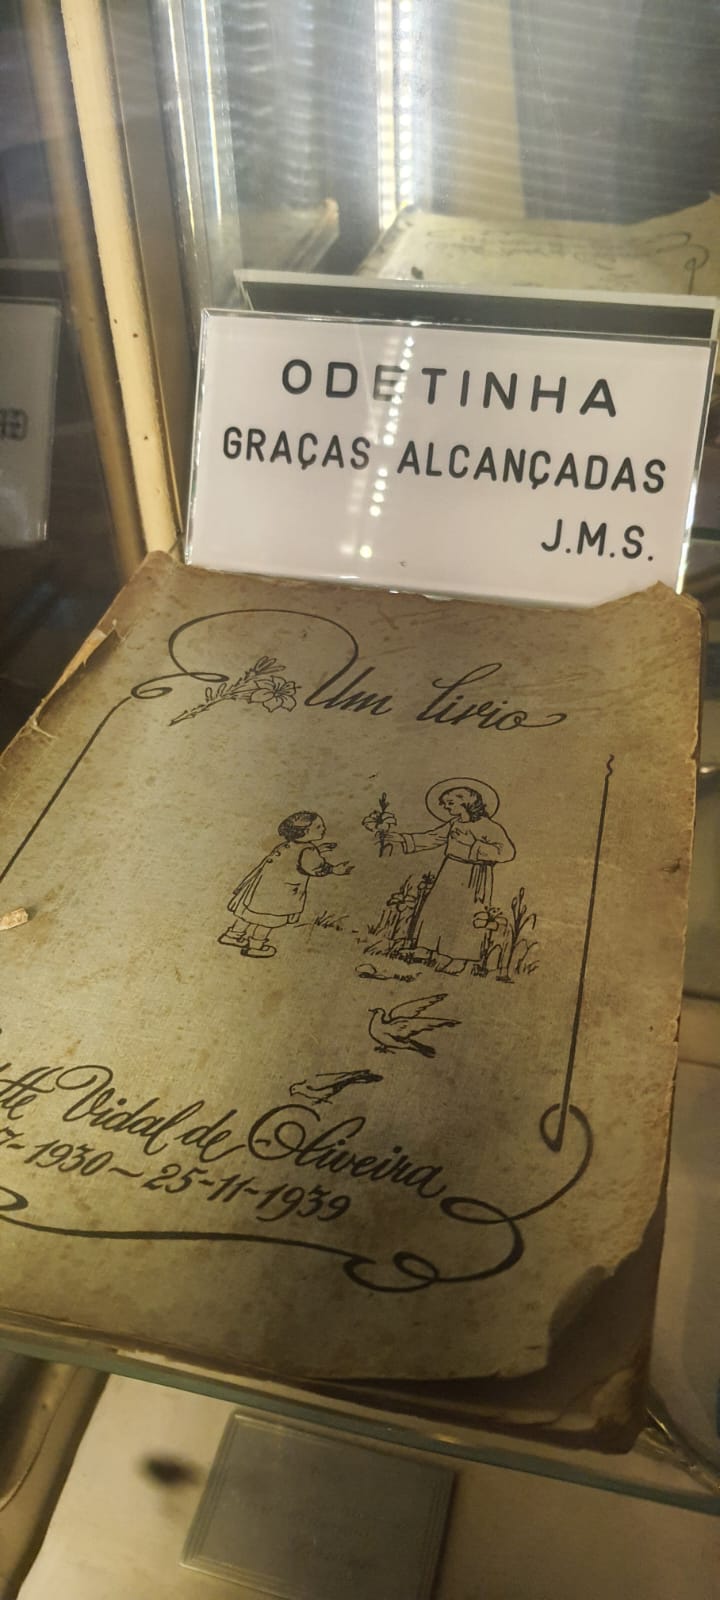 ODETINHA
GRAÇAS ALCANÇADAS
J.M.S.
Um lirio
Vidal de Oliveira
7-1930~25-11-1939